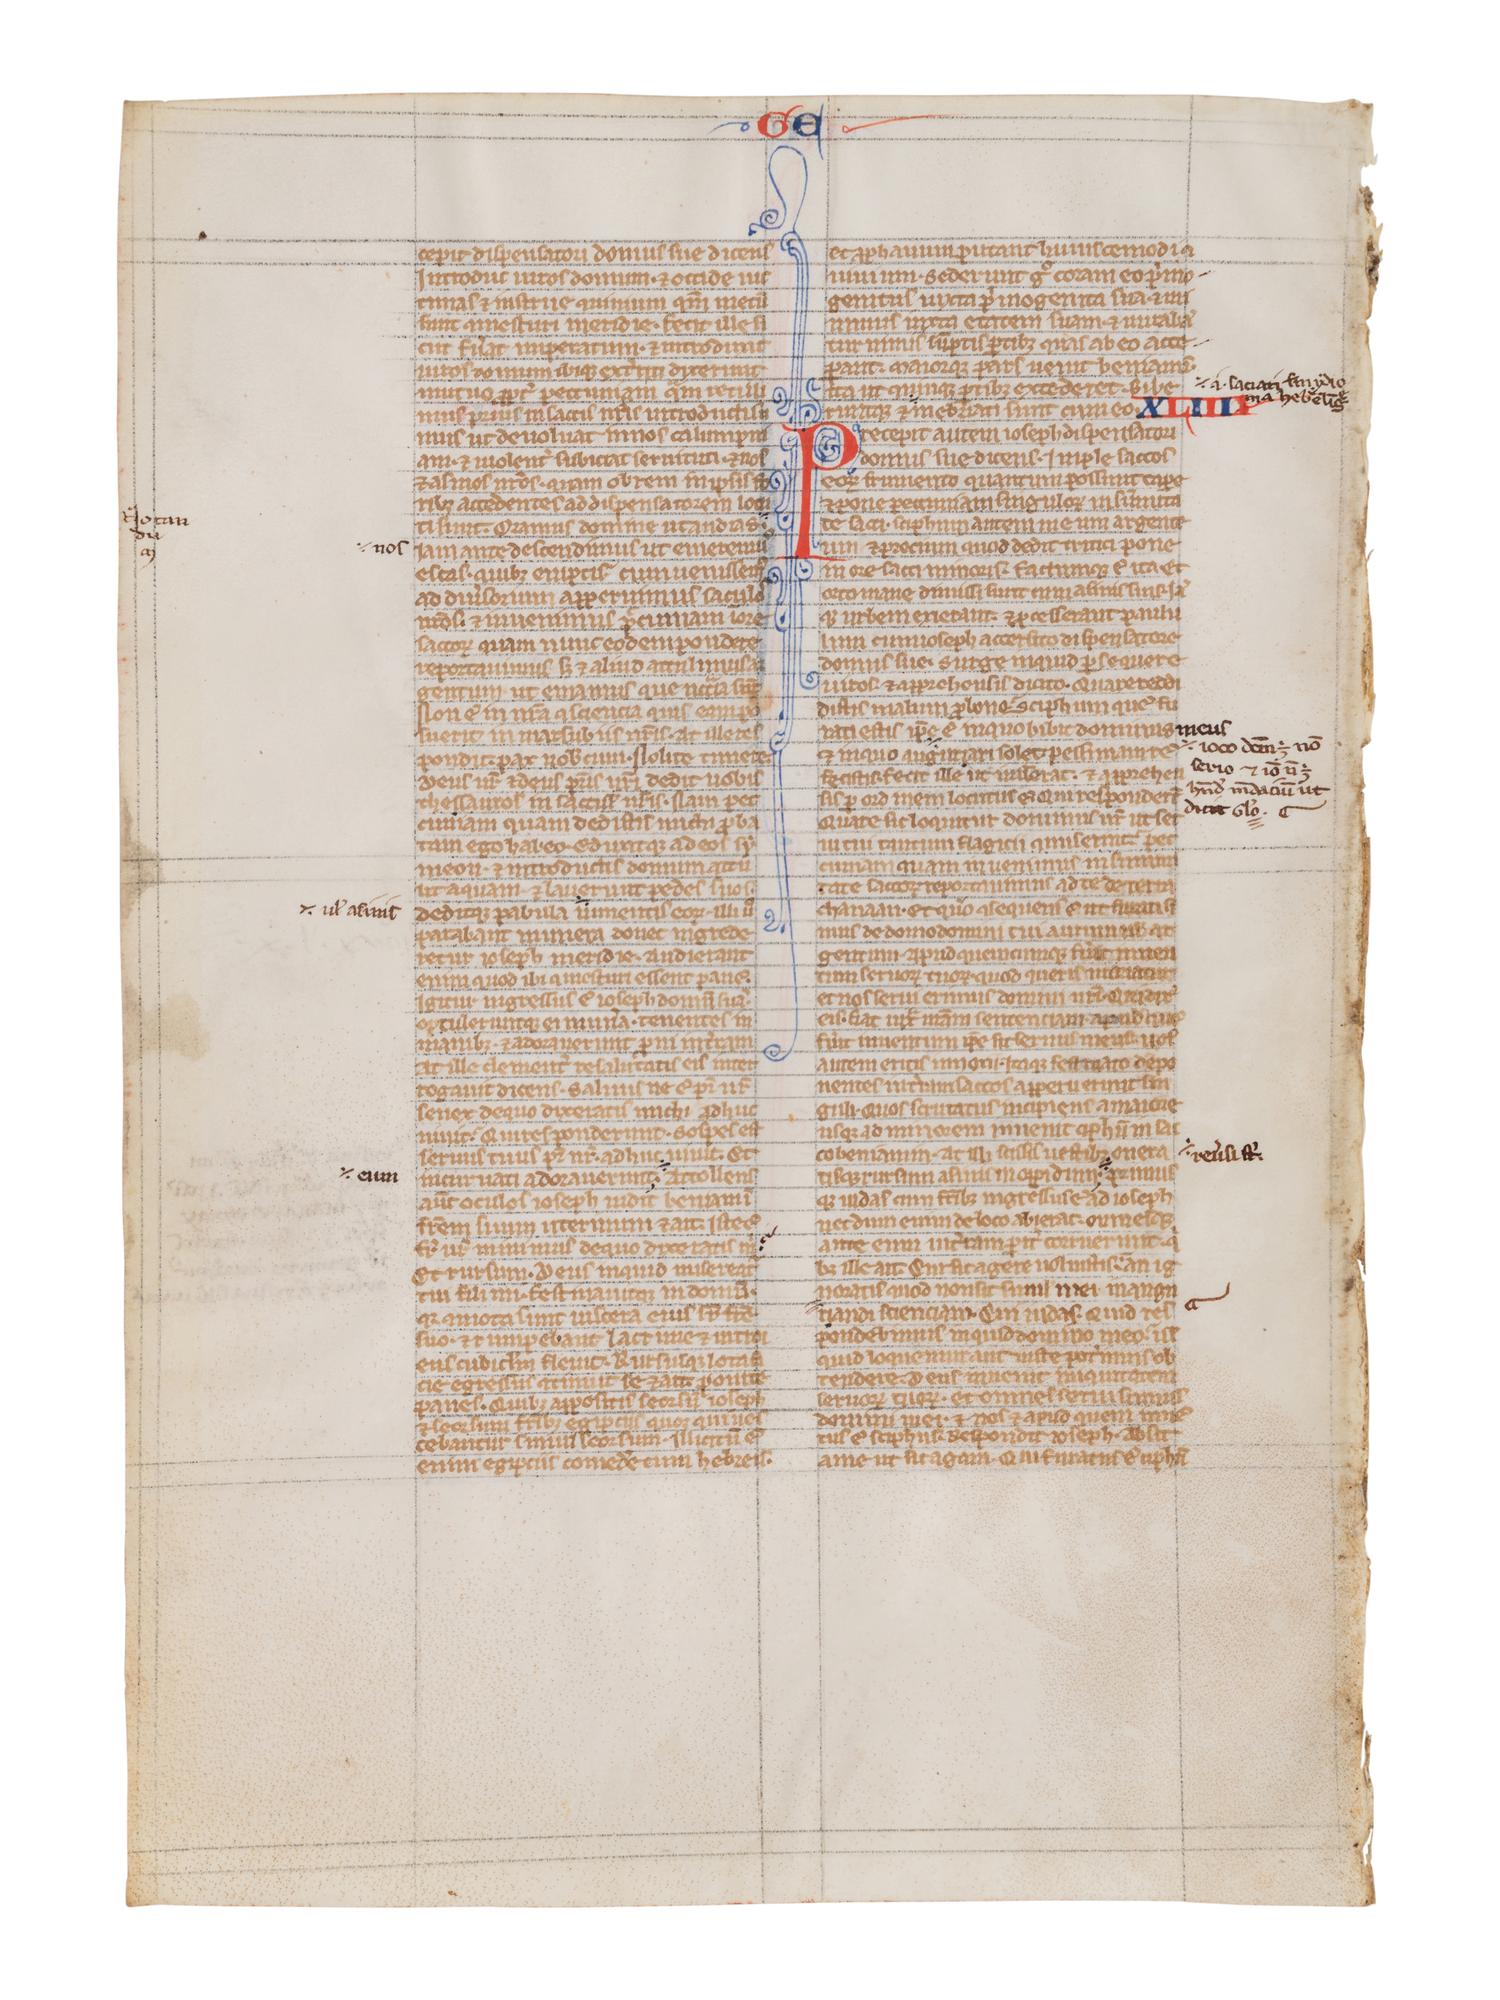 GE
cepit dispensatori domus sue dicens
Introduc uiros domum ⁊ occide uic
timas ⁊ instrue conuiuium qm̄ mecū
sunt comesturi meridie. fecit ille si
cut fuāt imperatum ⁊ introduxit
uiros domum ibiqꝫ extiti dixerunt
mutuo ꝓpt̄ pecuniam q̄m retuli
mus prius in saccis nr̄is introducti su
mus ut deuoluat in nos calumpni
am ⁊ uiolent̄ subiciat seruituti ⁊ nos
⁊ asinos nr̄os. quam ob rem in ipsis fo
ribꝫ accedentes ad dispensatorem locu
ti sunt. Oramus domine ut audias
Nos
nos
iam ante descendimus ut emeremus
escas. quibꝫ emptis cum uenissemꝰ
ad diuersorium apperuimus sacculos
nr̄os. ⁊ inuenimus pecuniam in ore
saccoꝝ quam nunc eodem pondere
reportauimus sꝫ ⁊ aliud attulimus ar
gentum ut emamus que nccͣia sūt
Non ē in nrā cōsciencia quis eam po
suerit in marsubiis nr̄is. At ille res
pondit. pax nobiscum. Nolite timere
Deus ur̄ ⁊ deus pr̄is ur̄i dedit uobis
thesauros in saccis ur̄is. Nam pec
cuniam quam dedistis michi proba
tam ego habeo. Eduxitqꝫ ad eos sy
meon. ⁊ introductis domum attu
lit aquam ⁊ lauerunt pedes suos
ul̄ asinis
deditqꝫ pabula iumentis eoꝝ. illi ū
parabant munera donec ingrede
retur ioseph meridie. audierant
enim quod ibi comesturi essent panē.
Igitur ingressus ē ioseph domū suā.
optuleruntqꝫ ei mun̄a tenentes in
manibꝫ ⁊ adorauerunt proni in t̄ram
At ille clement̄ resalutatis eis inter
rogauit dicens. Saluus ne ē pr̄ ur̄
senex de quo dixeratis michi adhuc
uiuit. Qui responderunt. Sospes est
seruus tuus pr̄ nr̄. adhuc uiuit. Et
eum
incuruati adorauerunt. Attollens
aūt oculos ioseph uidit beniamī
fr̄em suum uterinum ⁊ ait. Iste ē
fr̄ ur̄ minimus de quo dixeratis m̄
Et rursum. Deus inquid misereat̄
tui fili mi. festinauitqꝫ in domū.
qꝛ mota sunt uiscera eius sꝑ fr̄e
suo. ⁊ erumpebant lacrime ⁊ introi
ens cubiclm̄ fleuit. Rursusqꝫ lota fa
cie egressus cōtinuit se ⁊ ait ponite
panes. Quibꝫ appositis seorsū ioseph
⁊ seorsum fr̄ibꝫ egiptiis quoqꝫ qui ues
cebantur simul seorsum. Illicitū ē
enim egiptiis comedere cum hebreis.
et prophanum putant huiuscemodi cō
uiuium. Sederunt gͦ coram eo prino
genitus iuxta prinogenita sua. ⁊ mi
nimus iuxta etatem suam. ⁊ mirabā
tur nimis sūptis partibꝫ quas ab eo acce
perant. Maiorqꝫ pars uenit beniamī
i. saciati
ita ut quinqꝫ partibꝫ excederet. Bibe
runtqꝫ ⁊ inebriati sunt cum eo. XLIIII
Precepit autem ioseph dispensatori
domus sue dicens. Imple saccos
eoꝝ frumento quantum possunt cape
⁊ pone pecuniam singuloꝝ in sūmita
te sacci. sciphum autem meum argente
um ⁊ precium quod dedit tritici pone
in ore sacci minoris. Factumqꝫ ē ita. Et
orto mane dimissi sunt cum asinis suis. Ia
qꝫ urbem exierant. ⁊ processerant paulu
lum cum ioseph accersito dispensatore
domus sue. Surge inquid persequere
uiros. ⁊ apprehensis dicito. Quare reddi
distis malum pro bono. Sciphum quē fu
rati estis ipse ē in quo bibit dominus meus
⁊ in quo augurari solet. pessimam rē
ioco dcm̄ nō
serio
dicit Glo.
fecistis. fecit ille ut iusserat. ⁊ apprehen
sis per ordinem locutus ē. Qui responderūt
Quare sic loquitur dominus nr̄ ut ser
ui tui tantum flagicii cōmiserint. pec
cuniam quam inuenimus in sūmi
tate saccoꝝ reportauimus ad te de terra
chanaan. Et quo cōsequens ē ut furati si
mus de domo domini tui aurum uel ar
gentum. Apud quemcumqꝫ fūit inuen
tum seruoꝝ tuoꝝ quod queris moriatur
et nos serui erimus domini nr̄i. Qui dixit
eis. fiat iuxͣ ur̄am sentenciam. apud quē
fūit inuentum ipse sit seruus meus. uos
autem eritis innoxii. Itaqꝫ festinato depo
nentes in t̄ram saccos apperuerunt sin
guli. Quos scrutatus incipiens a maiore
usqꝫ ad minorem inuenit ciphū in sac
co beniamin. At illi scissis uestibꝫ onera
reuersi sūt
tisqꝫ rursum asinis in opidum. primus
qꝫ iudas cum fr̄ibꝫ ingressus ē ad ioseph
necdum enim de loco abierat. omnesqꝫ
ante eum in t̄ram pariter corruerunt. q̄
bꝫ ille ait. Cur sic agere uoluistis. an ig
noratis quod non sit similis mei in augu
riandi scienciam. Cui iudas. Quid res
pondebimus inquid domino meo. uel
quid loquemur aut iuste potimus ob
tendere. Deus inuenit iniquitatem
seruoꝝ tuoꝝ. et omnes serui sumus
domini mei. ⁊ nos ⁊ apud quem inuē
tus ē sciphus. Respondit ioseph. Absit
a me ut sic agam. Qui furatus ē ciphū